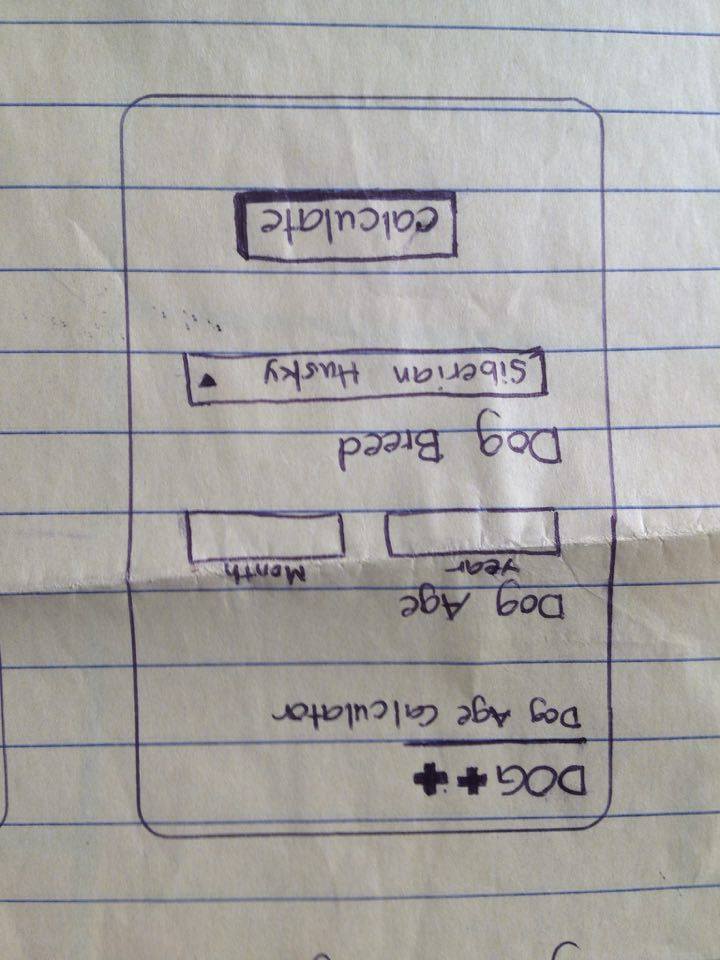 DOG++
Dog Age Calculator
Dog Age
Year Month
Dog Breed
Siberian Husky ▼
Calculate